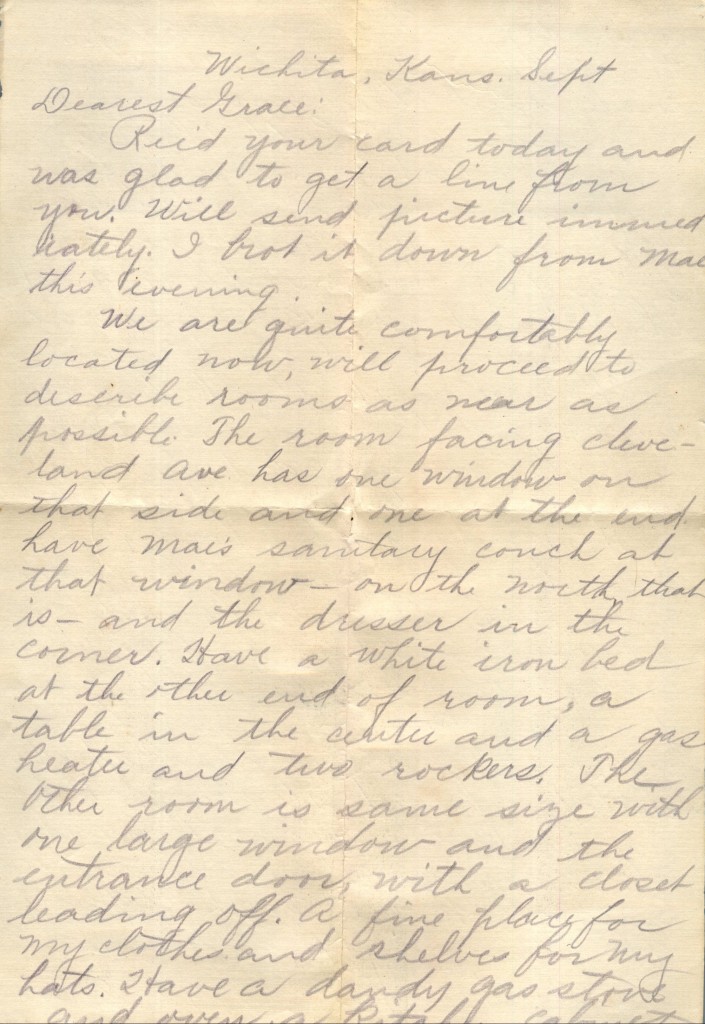 Wichita, Kans. Sept
Dearest Grace:
Rec'd your card today and
was glad to get a line from
you. Will send picture immed
iately. I brot it down from Mae
this evening.
We are quite comfortably
located now, will proceed to
describe rooms as near as
possible. The room facing cleve-
land ave has one window on
that side and one at the end
have Mae's sanitary couch at
that window - on the north that
is - and the dresser in the
corner. Have a white iron bed
at the other end of room, a
table in the center and a gas
heater and two rockers. The
other room is same size with
one large window and the
entrance door, with a closet
leading off. A fine place for
my clothes and shelves for my
hats. Have a dandy gas stove
and oven a kitchen cabinet